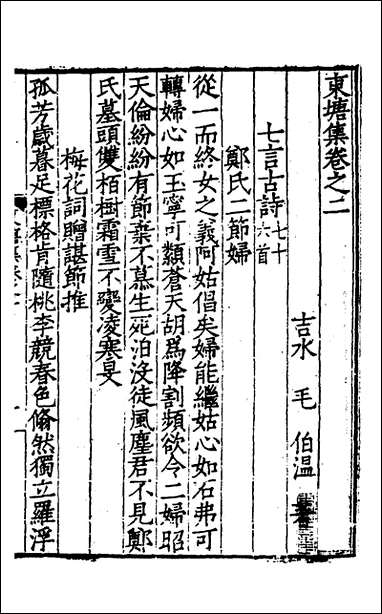 東塘集卷之二
吉水毛伯溫著
七言古詩七十六首
鄭氏二節婦
從一而終女之義阿姑倡矣婦能繼姑心如石弗可
轉婦心如玉寧可纇蒼天胡爲降割頻欲令二婦昭
天倫紛紛有節棄不慕生死泊沒徒風塵君不見鄭
氏墓頭雙栢樹霜雪不變凌寒旻
梅花詞贈諶節推
孤芳歲暮足標格肯隨桃李競春色翛然獨立羅浮